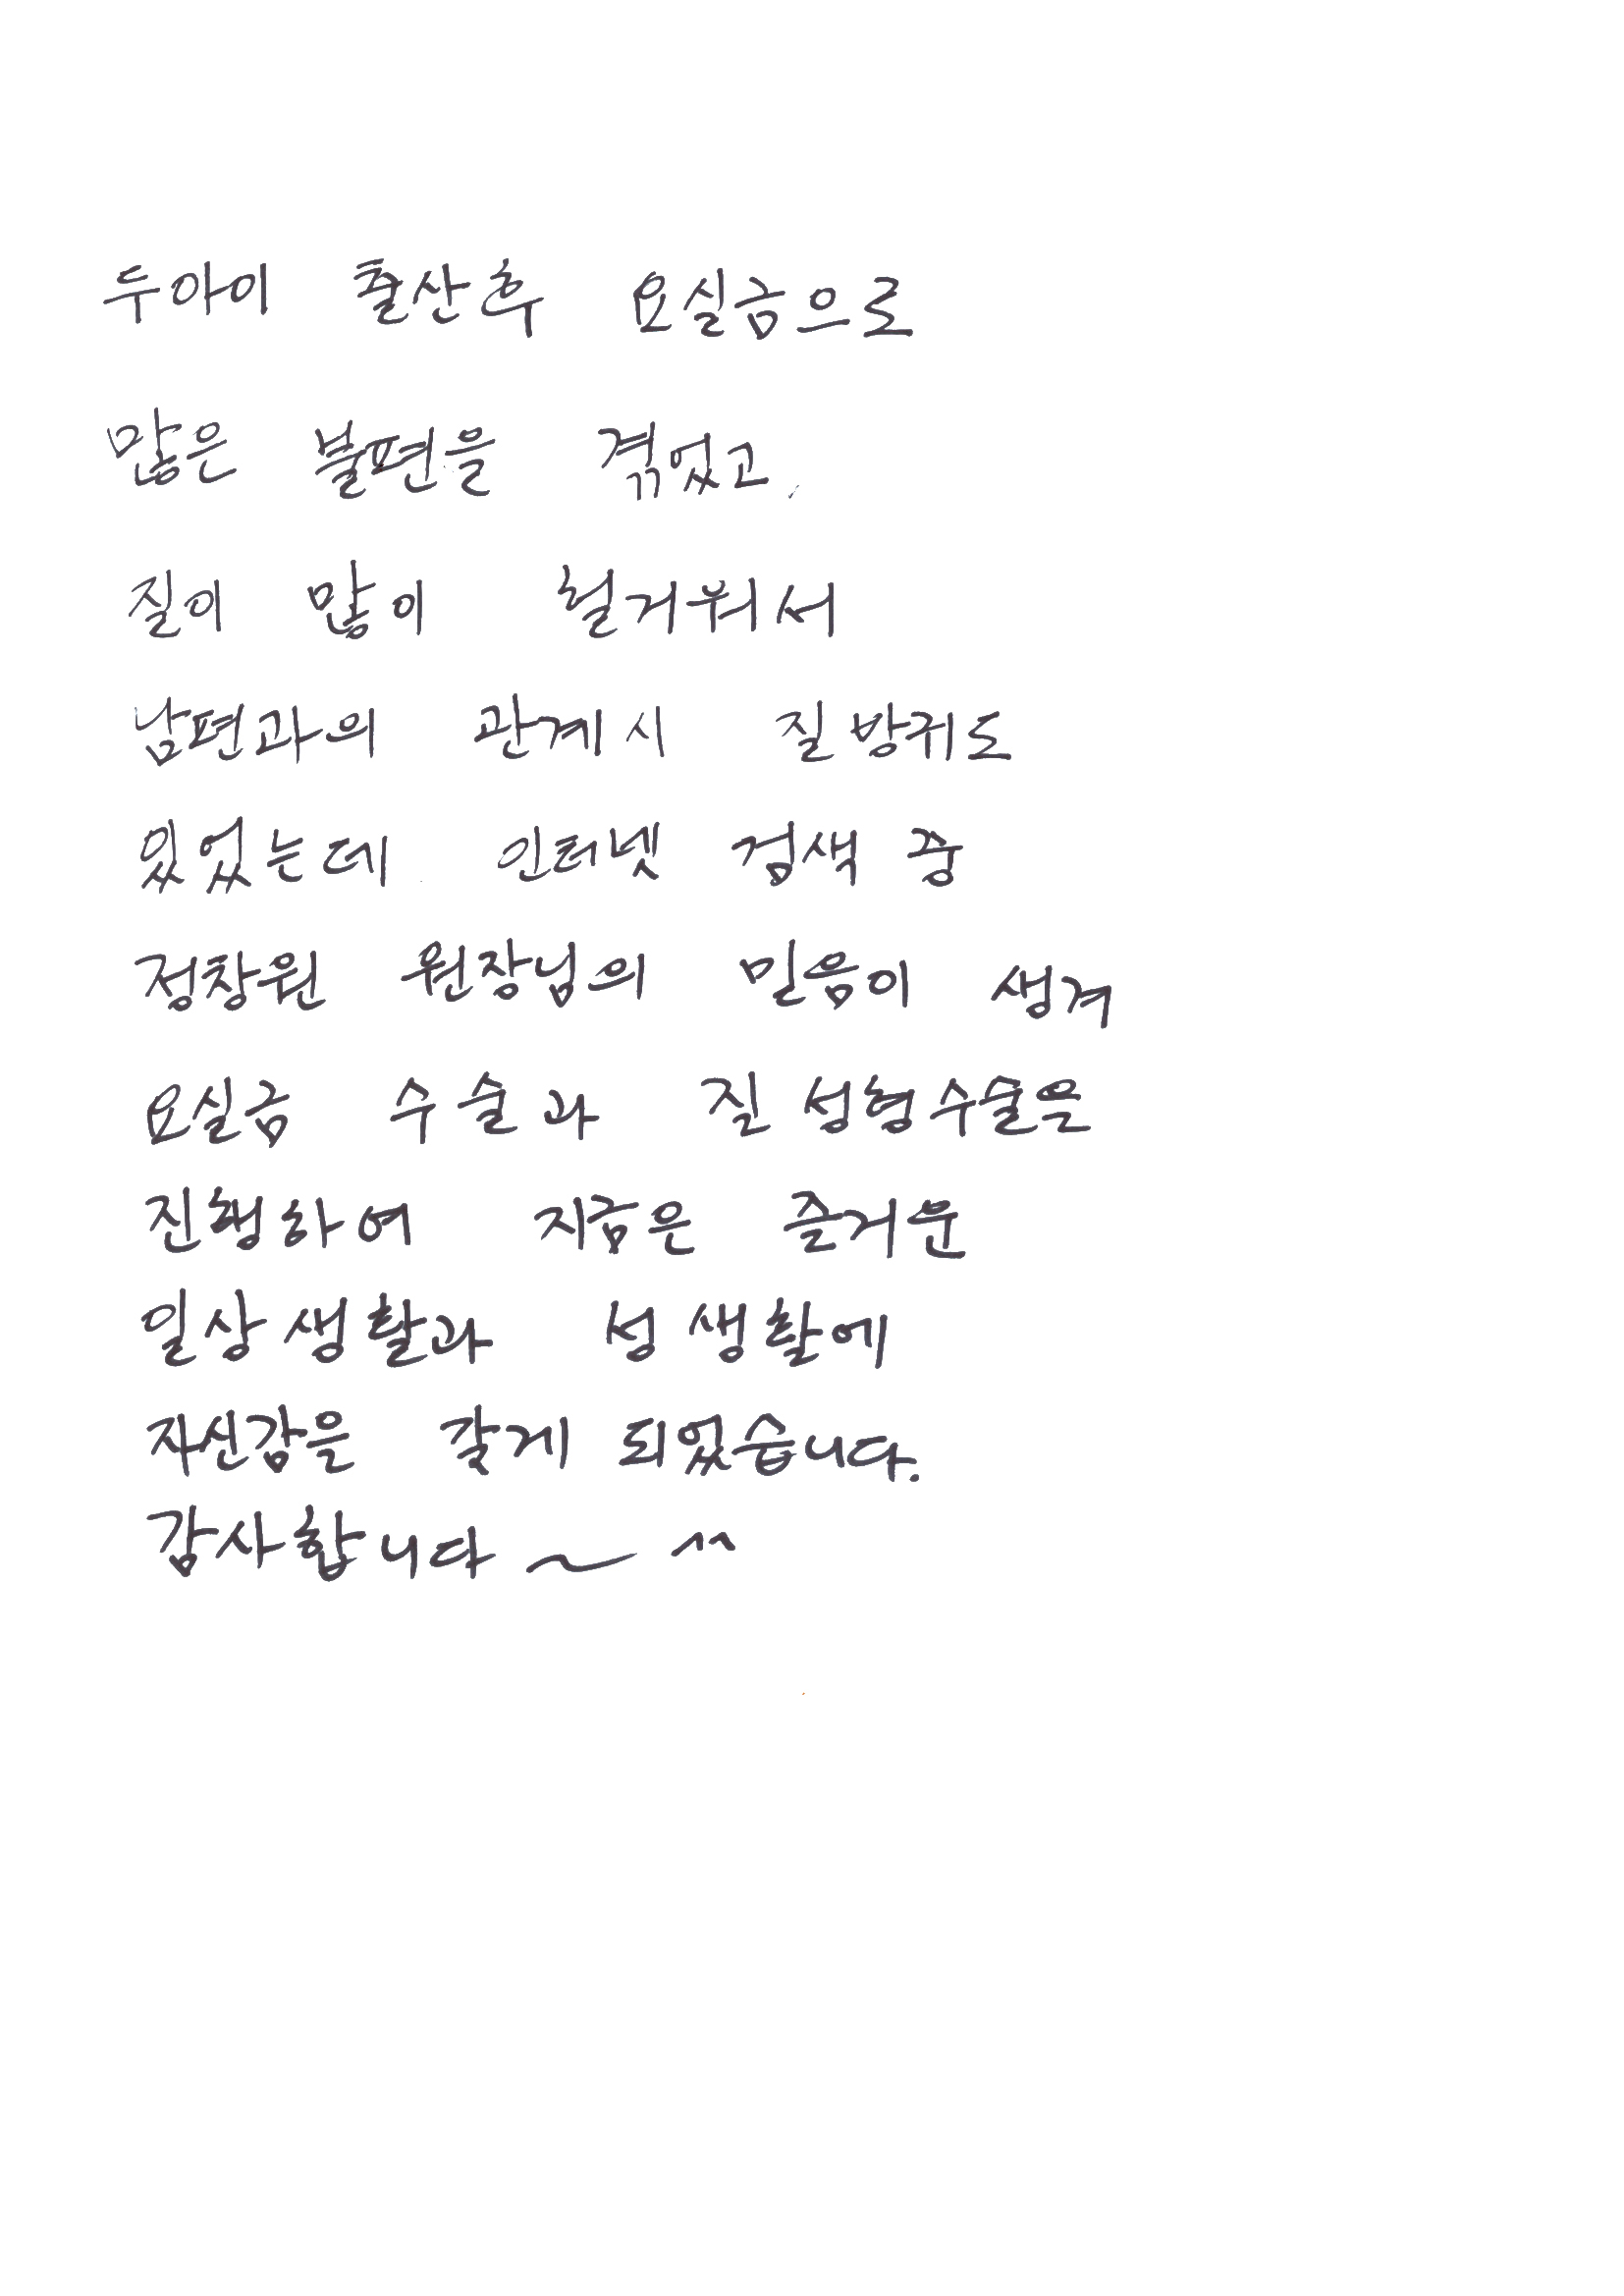 두아이 출산후 요실금으로
많은 불편을 겪었고,
질이 많이 헐거워서
남편과의 관계시 질방귀도
있었는데 인터넷 검색 중
정창원 원장님의 믿음이 생겨
요실금 수술과 질 성형수술을
진행하여 지금은 즐거운
일상생활과 성생활에
자신감을 갖게 되었습니다.
감사합니다~ ^^